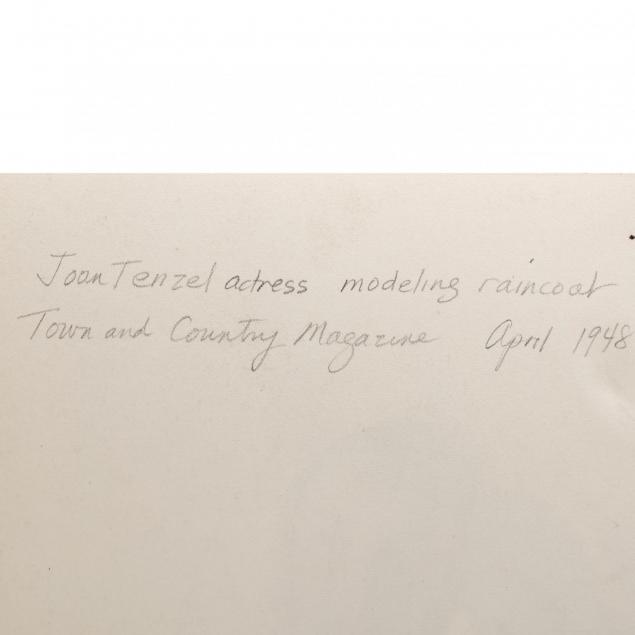 Joan Tenzel actress modeling raincoat
Town and Country Magazine April 1948